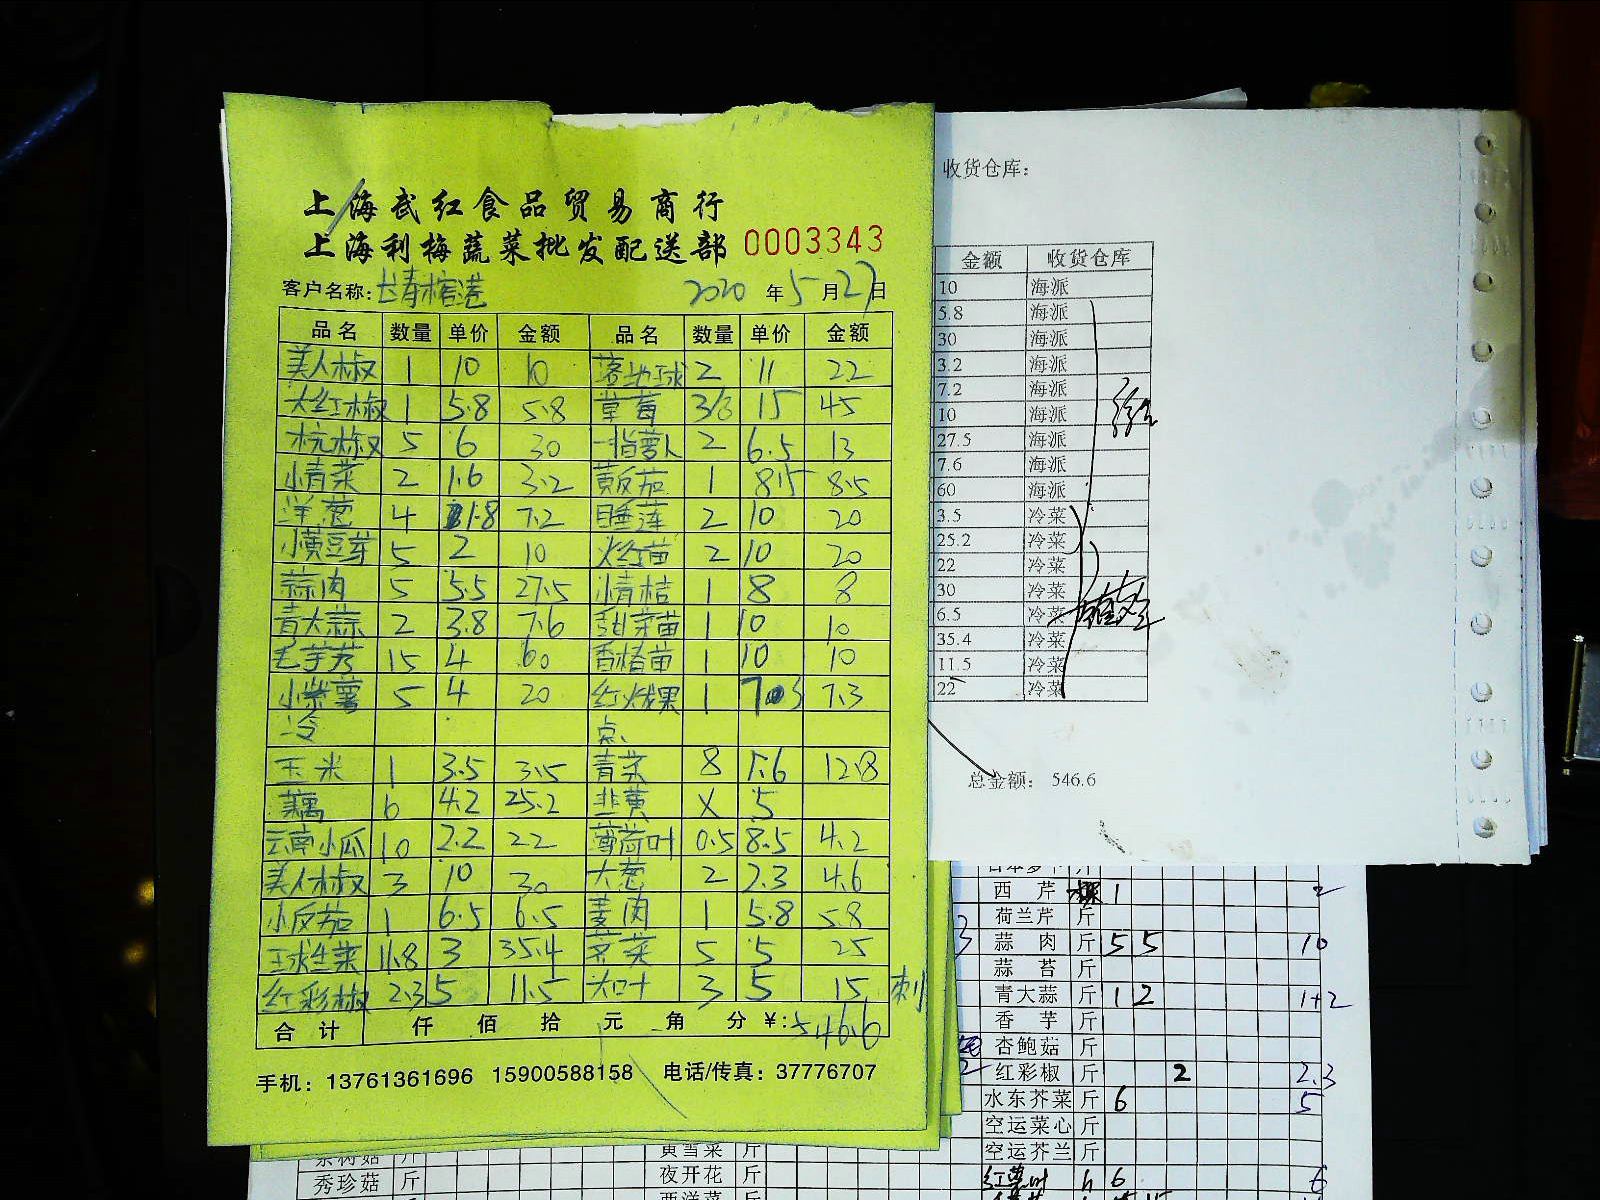 上海武红食品贸易商行
上海利梅蔬菜批发配送部 0003343
客户名称: 2020 年 5 月 27 日
品名 数量 单价 金额 品名 数量 单价 金额
美人椒 1 10 10 落地球 2 11 22
大红椒 1 5.8 5.8 草莓 3/3 15 45
杭椒 5 6 30 一指萝卜 2 6.5 13
小青菜 2 1.6 3.2 黄反茄 1 8.5 8.5
洋葱 4 1.8 7.2 睡莲 2 10 20
小黄豆芽 5 2 10 火红苗 2 10 20
蒜肉 5 5.5 27.5 小青桔 1 8 8
青大蒜 2 3.8 7.6 甜菜苗 1 10 10
毛芋艿 15 4 60 香椿苗 1 10 10
小紫薯 5 4 20 红火龙果 1 7.3 7.3
冷 点
玉米 1 3.5 3.5 青菜 8 1.6 12.8
藕 6 4.2 25.2 韭黄 X 5
云南小瓜 10 2.2 22 薄荷叶 0.5 8.5 4.2
美人椒 3 10 30 大葱 2 2.3 4.6
小反茄 1 6.5 6.5 姜肉 1 5.8 5.8
球生菜 11.8 3 35.4 荠菜 5 5 25
红彩椒 2.3 5 11.5 大叶 3 5 15 刺
合计 仟 佰 拾 元 角 分 ¥: 546.6
手机: 13761361696 15900588158 电话/传真: 37776707
收货仓库:
金额 收货仓库
10 海派
5.8 海派
30 海派
3.2 海派
7.2 海派
10 海派
27.5 海派
7.6 海派
60 海派
3.5 冷菜
25.2 冷菜
22 冷菜
30 冷菜
6.5 冷菜
35.4 冷菜
11.5 冷菜
22 冷菜
总金额: 546.6
西芹 1 2
荷兰芹 斤
蒜肉 斤 5 5 10
蒜苔 斤
青大蒜 斤 1 2 1+2
香芋 斤
杏鲍菇 斤
红彩椒 斤 2 2.3
水东芥菜 斤 6 5
空运菜心 斤
空运芥兰 斤
黄雪菜 斤
秀珍菇 斤 夜开花 斤 6 6